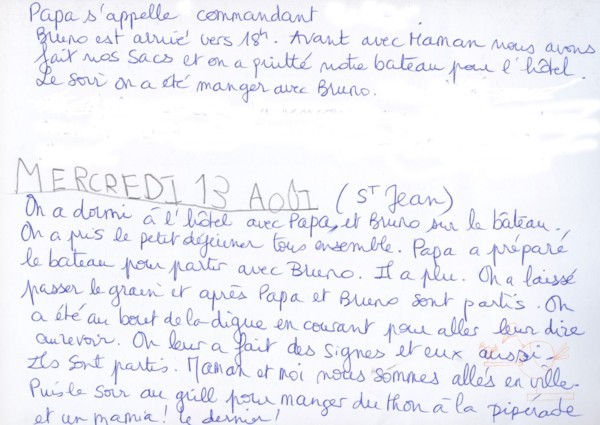 Papa s'appelle commandant
Bruno est arrivé vers 18h. Avant avec Maman nous avons
fait nos sacs et on a quitté notre bateau pour l'hôtel.
Le soir on a été manger avec Bruno.
MERCREDI 13 AOÛT (ST Jean)
On a dormi à l'hôtel avec Papa, et Bruno sur le bâteau.
On a pris le petit déjeuner tous ensemble. Papa a préparé
le bateau pour partir avec Bruno. Il a plu. On a laissé
passer le grain et après Papa et Bruno sont partis. On
a été au bout de la digue en courant pour aller leur dire
aurevoir. On leur a fait des signes et eux aussi.
Ils sont partis. Maman et moi nous sommes allés en ville.
Puis le soir au grill pour manger du thon à la pipérade
et un mamia! le dernier!